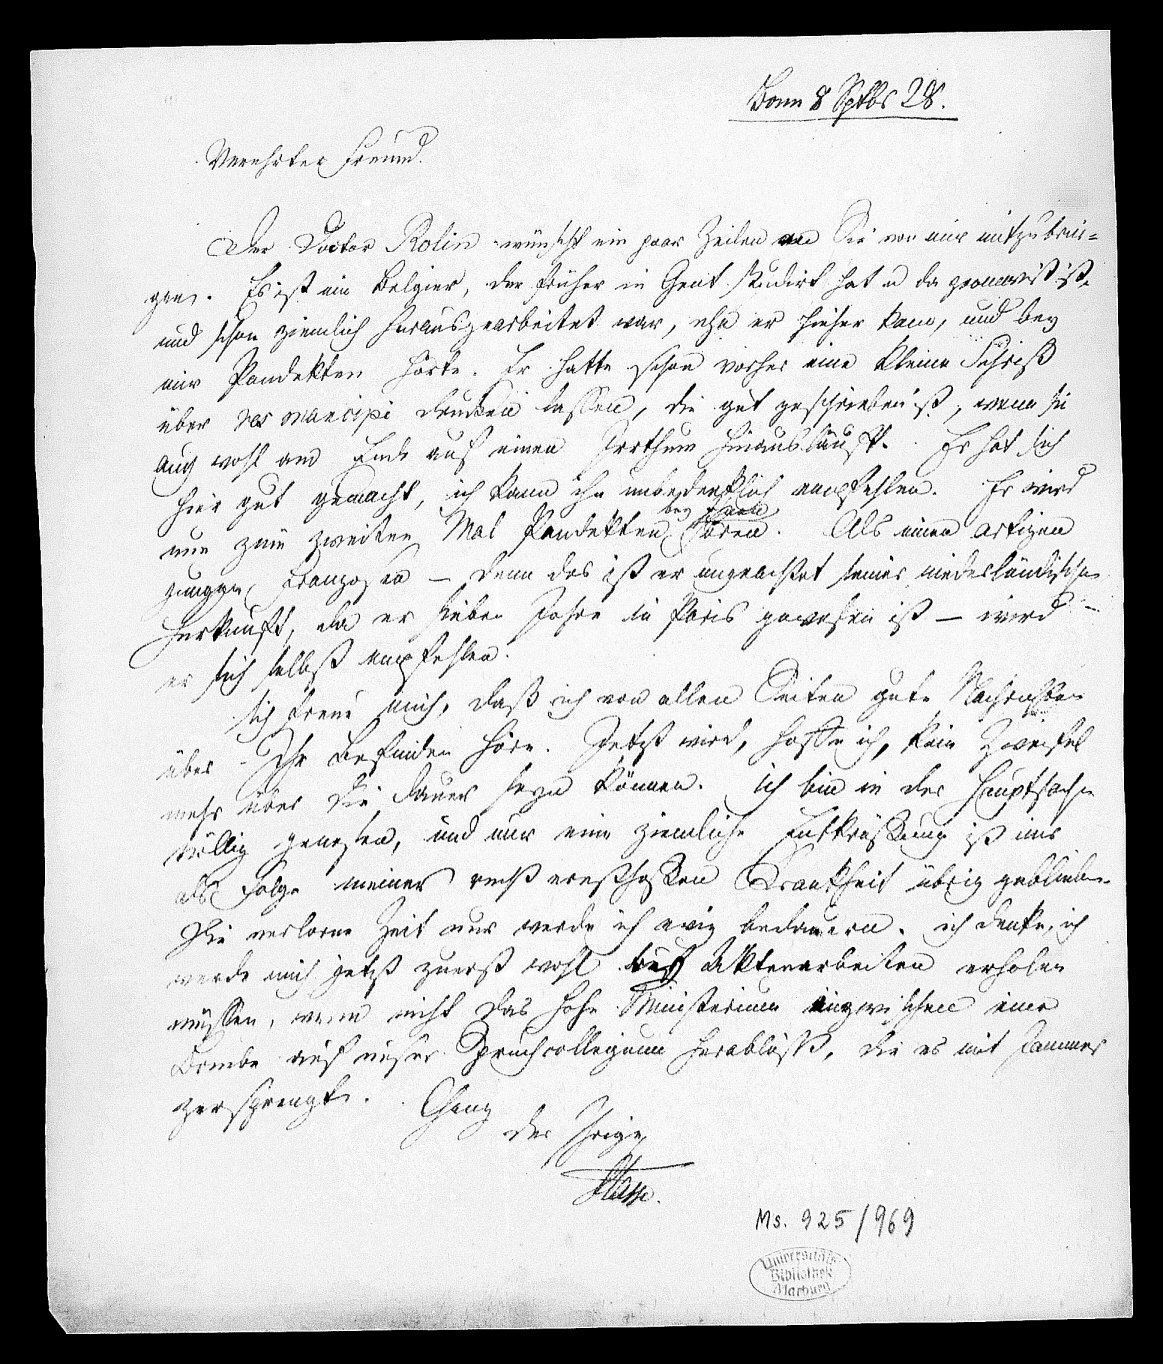 Bonn 8 Sptbr 28.
Verehrter Freund.
Der Doctor Rolin wünscht ein paar Zeilen an Sie von mir mitzubrin-
gen. Es ist ein Belgier, der früher in Gent studirt hat u da promovirt ist,
und schon ziemlich herausgearbeitet war, ehe er hieher kam, und bey
mir Pandekten hörte. Er hatte schon vorher eine kleine Schrift
über res mancipi drucken lassen, die gut geschrieben ist, wenn sie
auch wohl am Ende auf einen Irrthum hinausläuft. Er hat sich
hier gut gemacht, ich kann ihn unbedenklich empfehlen. Er wird
bey Ihnen
nun zum zweiten Mal Pandekten hören. Als einen artigen
jungen Franzosen – denn das ist er ungeachtet seiner niederländischen
Herkunft, da er sieben Jahre in Paris gewesen ist – wird
er sich selbst empfehlen.
Ich freue mich, daß ich von allen Seiten gute Nachrichten
über Ihr Befinden höre. Jetzt wird, hoffe ich, kein Zweifel
mehr über die Dauer seyn können. Ich bin in der Hauptsache
völlig genesen, und nur eine ziemliche Entkräftung ist mir
als Folge meiner recht ernsthaften Krankheit übrig geblieben.
Die verlorne Zeit nur werde ich ewig bedauern. ich denke, ich
werde mich jetzt zuerst wohl auf Aktenarbeiten erholen
müssen, wenn nicht das hohe Ministerium inzwischen eine
Bombe auf unser Spruchcollegium herabläßt, die es mit sammer
zersprengt. Ganz
der Ihrige
Hasse.
Ms. 925/969
Universitäts
Bibliothek
Marburg